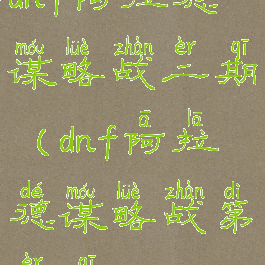 móu lüè zhàn èr qī
谋略战二期
ā lā
(dnf阿拉
dé móu lüè zhàn dì
德谋略战第
èr qī